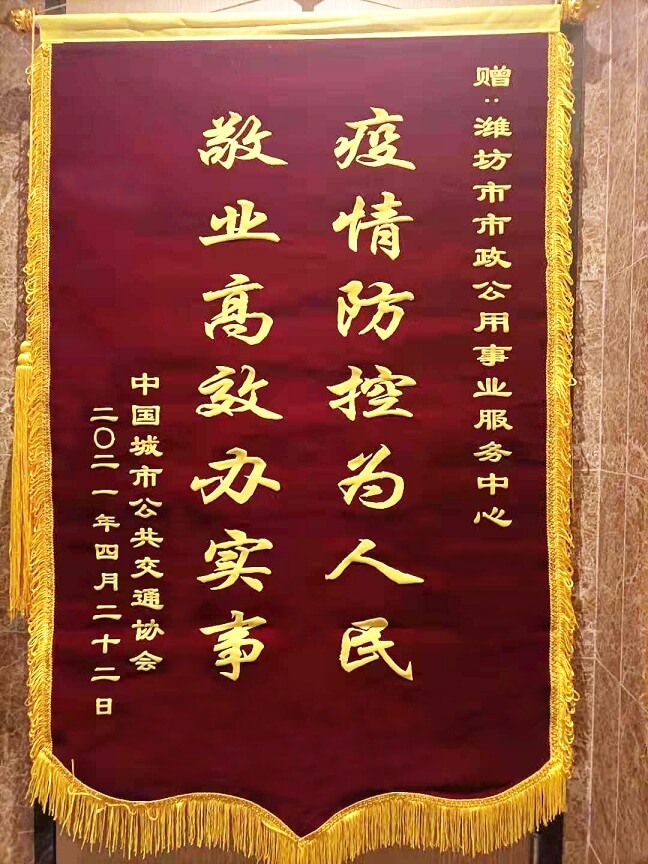 赠:潍坊市市政公用事业服务中心
疫情防控为人民
敬业高效办实事
中国城市公共交通协会
二〇二一年四月二十二日